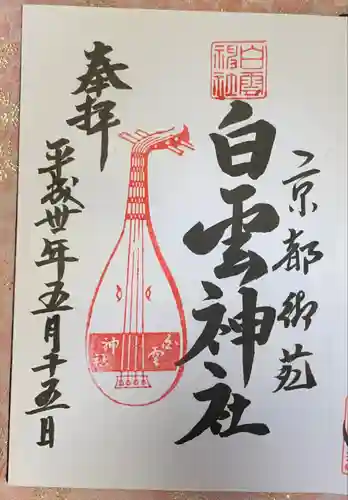 京都御苑
白雲神社
白雲神社
白雲神社
奉拝
平成卅年五月十五日